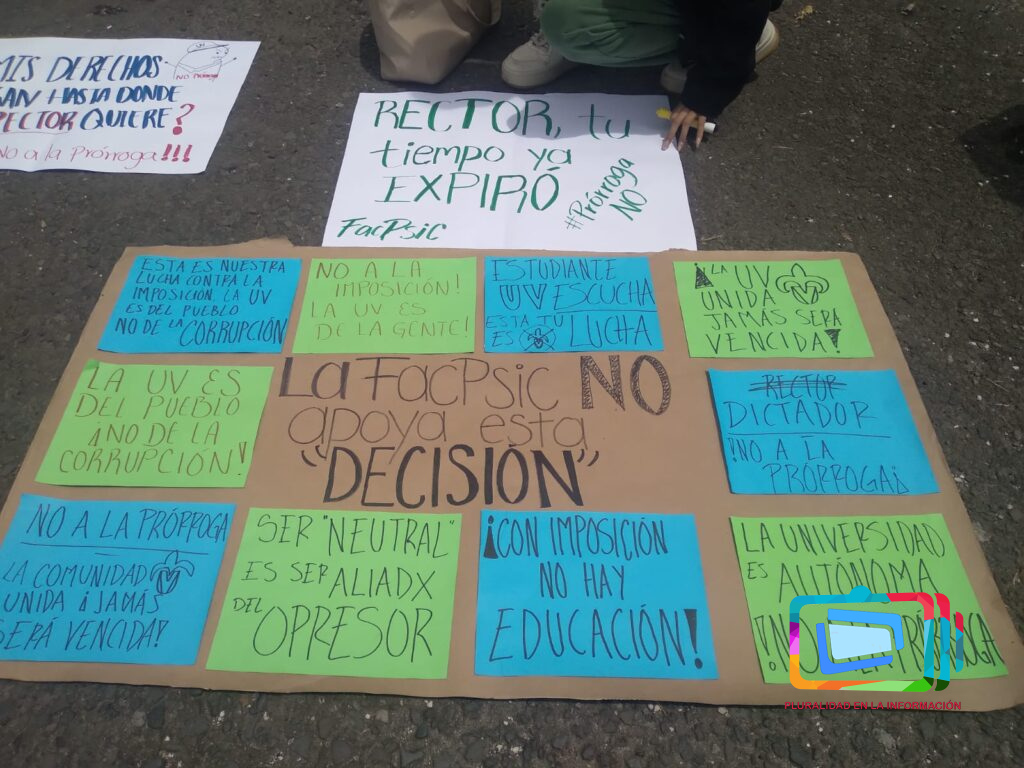 MIS DERECHOS
HASTA DONDE
RECTOR QUIERE?
No a la Prórroga!!!
NO
RECTOR, tu
tiempo ya
EXPIRÓ
#Prórroga
NO
FacPsic
ESTA ES NUESTRA
LUCHA CONTRA LA
IMPOSICIÓN. LA UV
ES DEL PUEBLO
NO DE LA CORRUPCIÓN
NO A LA
IMPOSICIÓN!
LA UV ES
DE LA GENTE!
ESTUDIANTE
UV ESCUCHA
ESTA TÚ
ES LUCHA
¡LA UV
UNIDA
JAMÁS SERÁ
VENCIDA!
LA UV ES
DEL PUEBLO
¡NO DE LA
CORRUPCIÓN!
La FacPsic NO
apoya esta
"DECISIÓN"
RECTOR
DICTADOR
!NO A LA
PRÓRROGA¡
NO A LA PRÓRROGA
LA COMUNIDAD
UNIDA ¡JAMÁS
SERÁ VENCIDA!
SER "NEUTRAL"
ES SER ALIADX
DEL OPRESOR
¡CON IMPOSICIÓN
NO HAY
EDUCACIÓN!
LA UNIVERSIDAD
ES AUTÓNOMA
PRÓRROGA
PLURALIDAD EN LA INFORMACIÓN